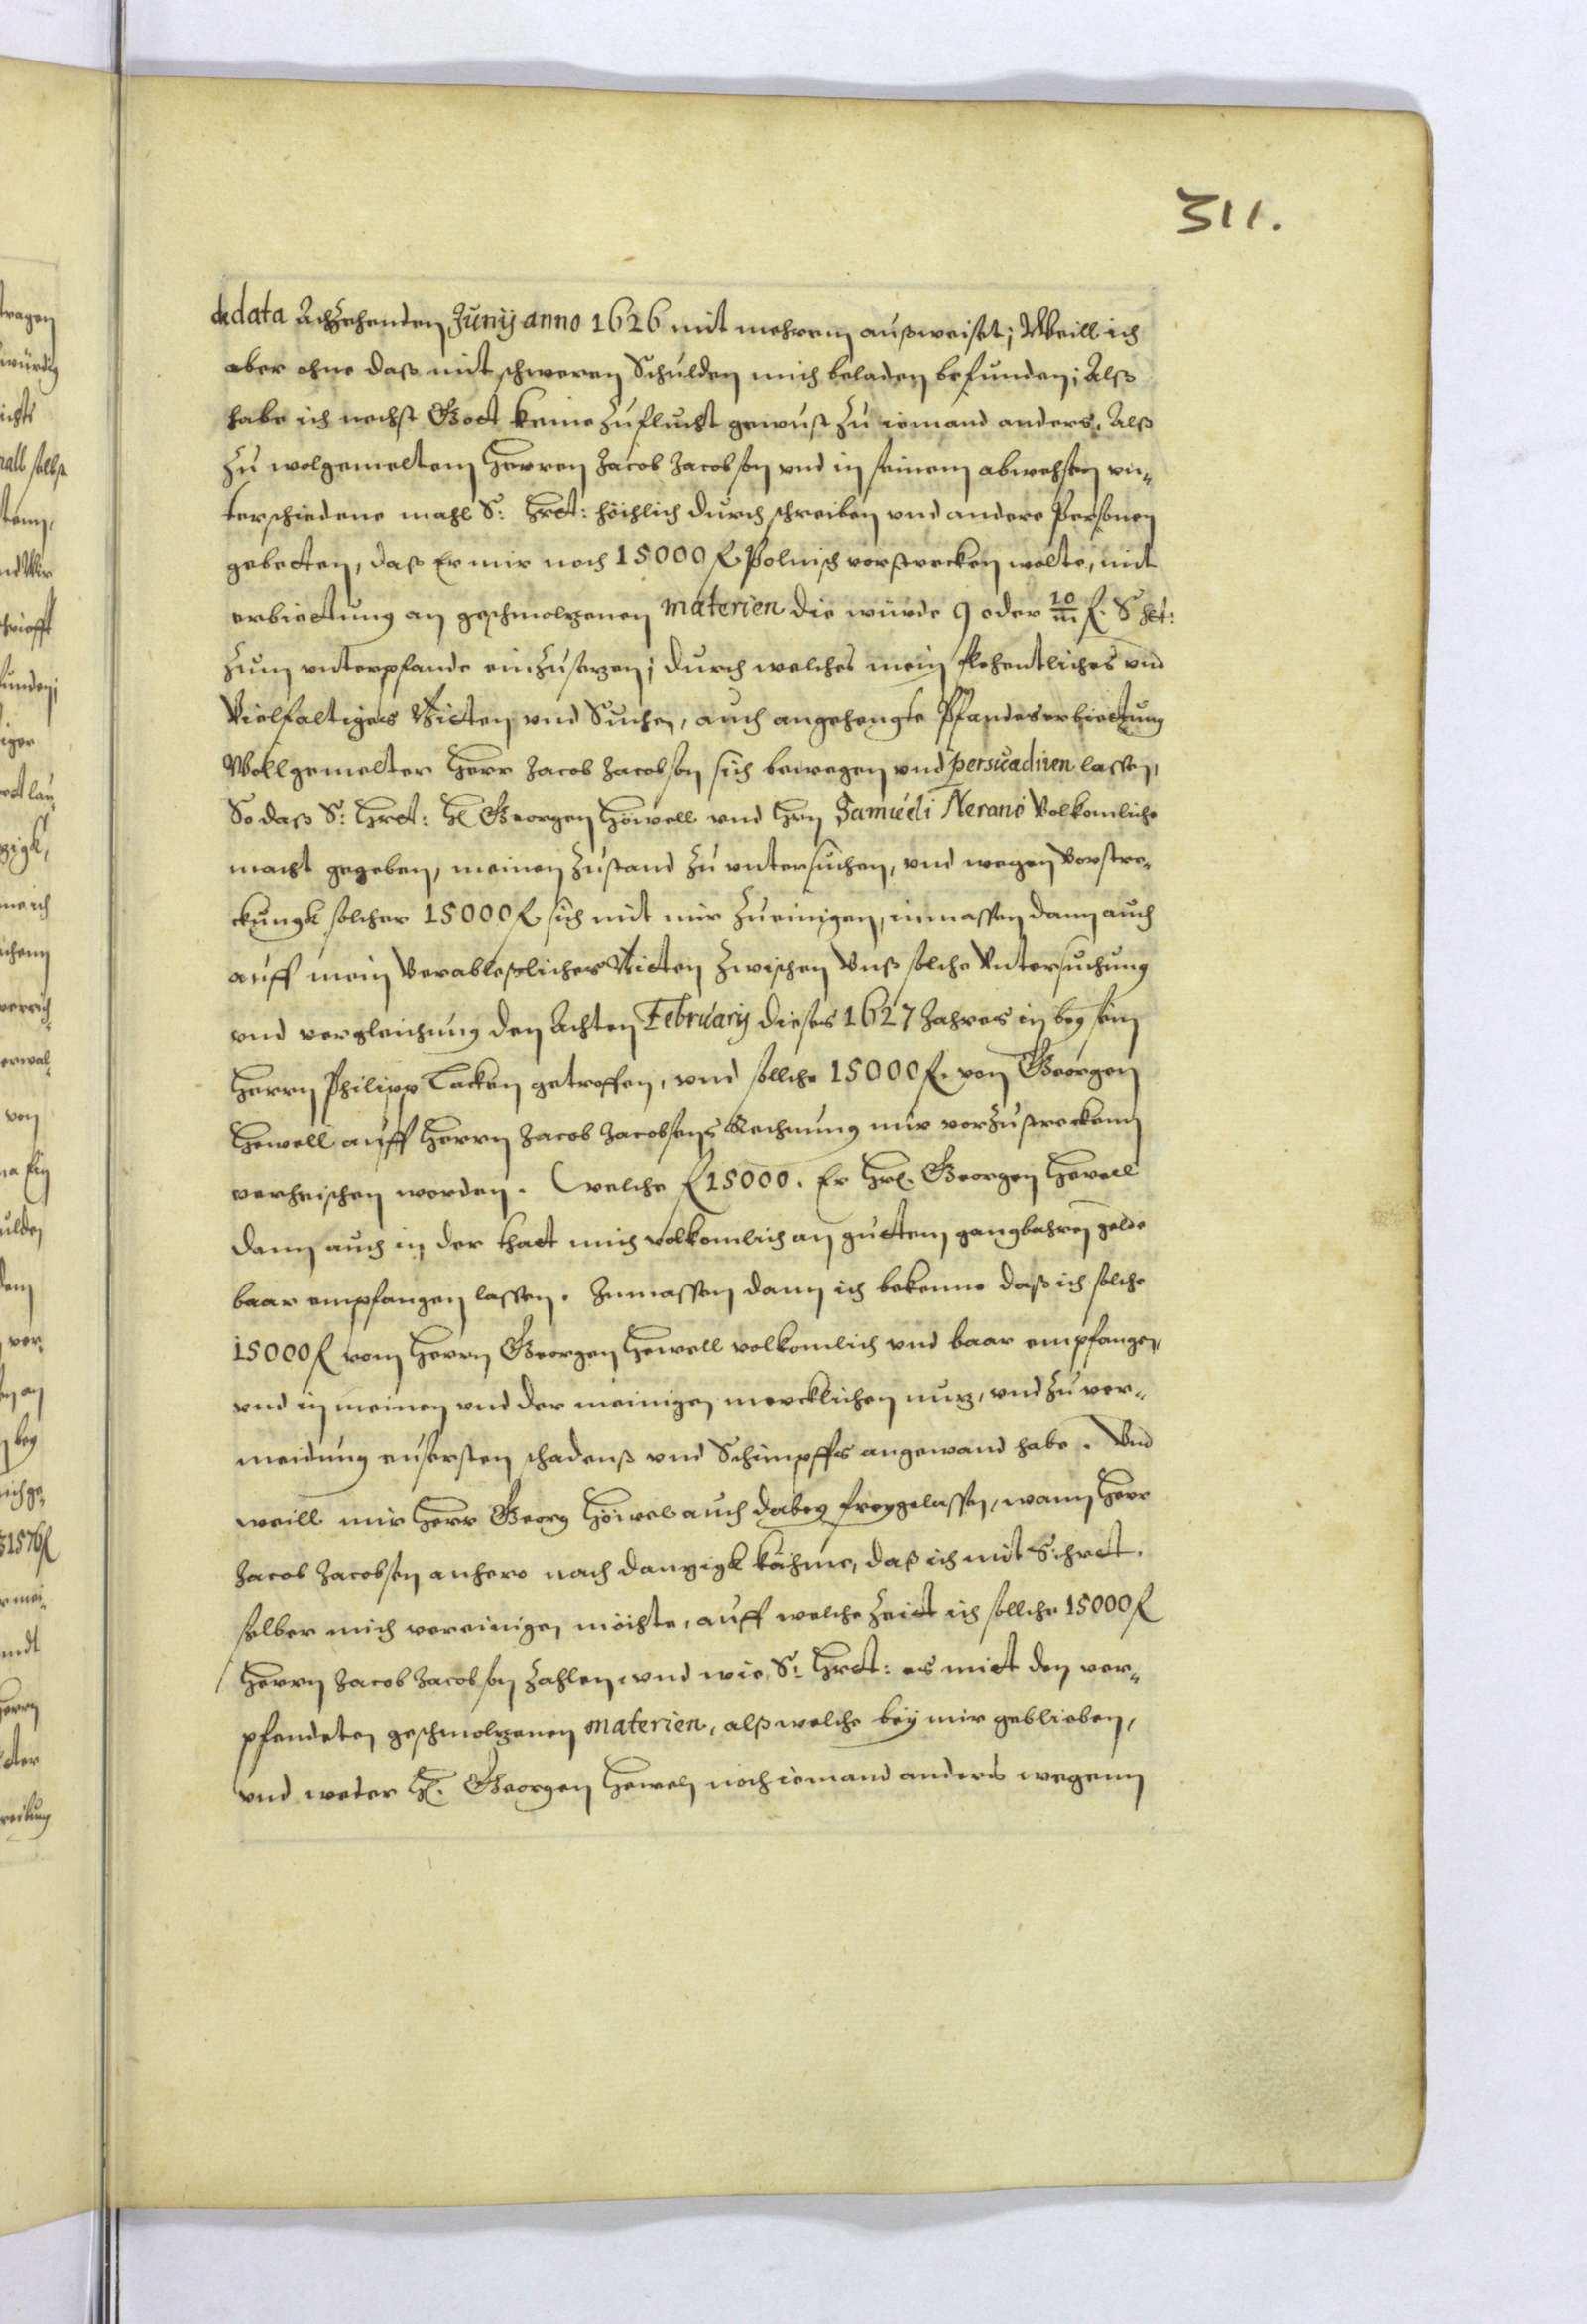 311.
de data Achzehenden Junij anno 1626 mit mehrem außweiset; Weill ich
aber ohne daß mit schweren Schulden mich beladen befunden; Alß
habe ich nechst Gott keine Zuflucht gewust zu iemand anders, Alß
zu wolgemeltem Herren Jacob Jacobson vnd in seinem abwesen vn„
terschiedene mahl S: Hrrt: höichlich durch schreiben vnd andere Personen
gebetten, daß Er mir noch 15000 fl Polnisch vorstrecken wolte, mit
erbiettung an geschmolzenen materien die würde 9 oder 10/m fl. S Hrt:
zum vnterpfande einzusezen; durch welches mein flehentliches vnd
Vielfaltiges Bitten vnd Suchen, auch angehengte Pfandeserbiettung
Wollgemelter Herr Jacob Jacobson sich bewegen vnd persuadiren lassen,
So daß S: Hrrt: H Georgen Höwell vnd Hrn Samueli Nerano Volkomliche
macht gegeben, meinen Zustand zu vntersuchen, vnd wegen vorstre„
ckungk solcher 15000 fl sich mit mir zu einigen, inmassen dann auch
auff mein Vnableßliches Bitten zwischen Vnß solche Vntersuchung
vnd vergleichung den Achten Februarij dieses 1627 Jahres in bey sein
Herrn Philipp Lacken getroffen, vnd sollche 15000 fl. von Georgen
Hewell auff Herrn Jacob Jacobsens Rechnung mir vorzustreckenn
verheischen worden. welche fl 15000. Er Hr. Georgen Hevell
dann auch in der thatt mich volkomlich an guttem gangbahren gelde
baar empfangen lassen. Inmassen dann ich bekenne daß ich solche
15000 fl vom Herrn Georgen Hewell volkomlich vnd baar empfangen,
vnd in meinen vnd der meinigen mercklichen nuz, vnd zu ver„
meidung eusersten schadenß vnd Schimpffes angewand habe. Vnd
weill mir Herr Georg Höwel auch dabey freygelassen, wann Herr
Jacob Jacobsen anhero nach danzigk kähme, daß ich mit S: Hrrt.
selber mich vereinigen möchte, auff welche Zeit ich sollche 15000 fl
Herrn Jacob Jacobson zahlen vnd wie S: Hrrt: es mitt den ver„
pfendeten geschmolzenen materien, alß welche bey mir geblieben,
vnd weder H. Georgen Heweln noch iemand anders wegenn